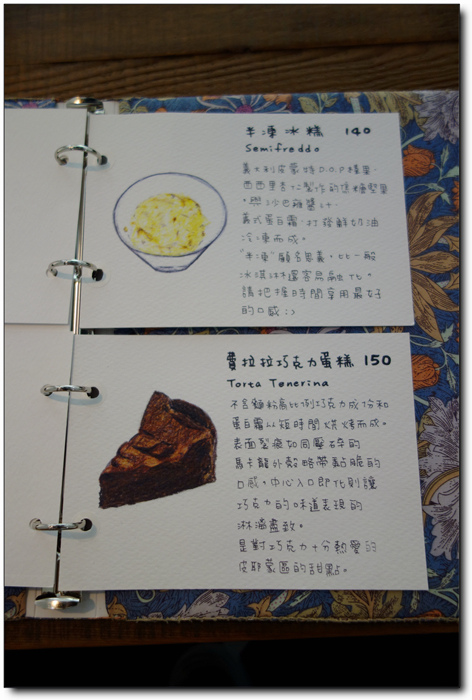 半凍冰糕 140
Semifreddo
義大利皮蒙特D.O.P榛果、
西西里杏仁製作的焦糖堅果
，與沙巴雍醬汁、
義式蛋白霜、打發鮮奶油
冷凍而成。
"半凍"顧名思義，比一般
冰淇淋還容易融化。
請把握時間享用最好
的口感:)
費拉拉巧克力蛋糕 150
Torta Tenerina
不含麵粉高比例巧克力成份和
蛋白霜以短時間烘烤而成。
表面裂痕如同壓碎的
馬卡龍外殼略帶黏脆的
口感，中心入口即化則讓
巧克力的味道表現的
淋漓盡致。
是對巧克力十分熱愛的
皮耶蒙區的甜點。